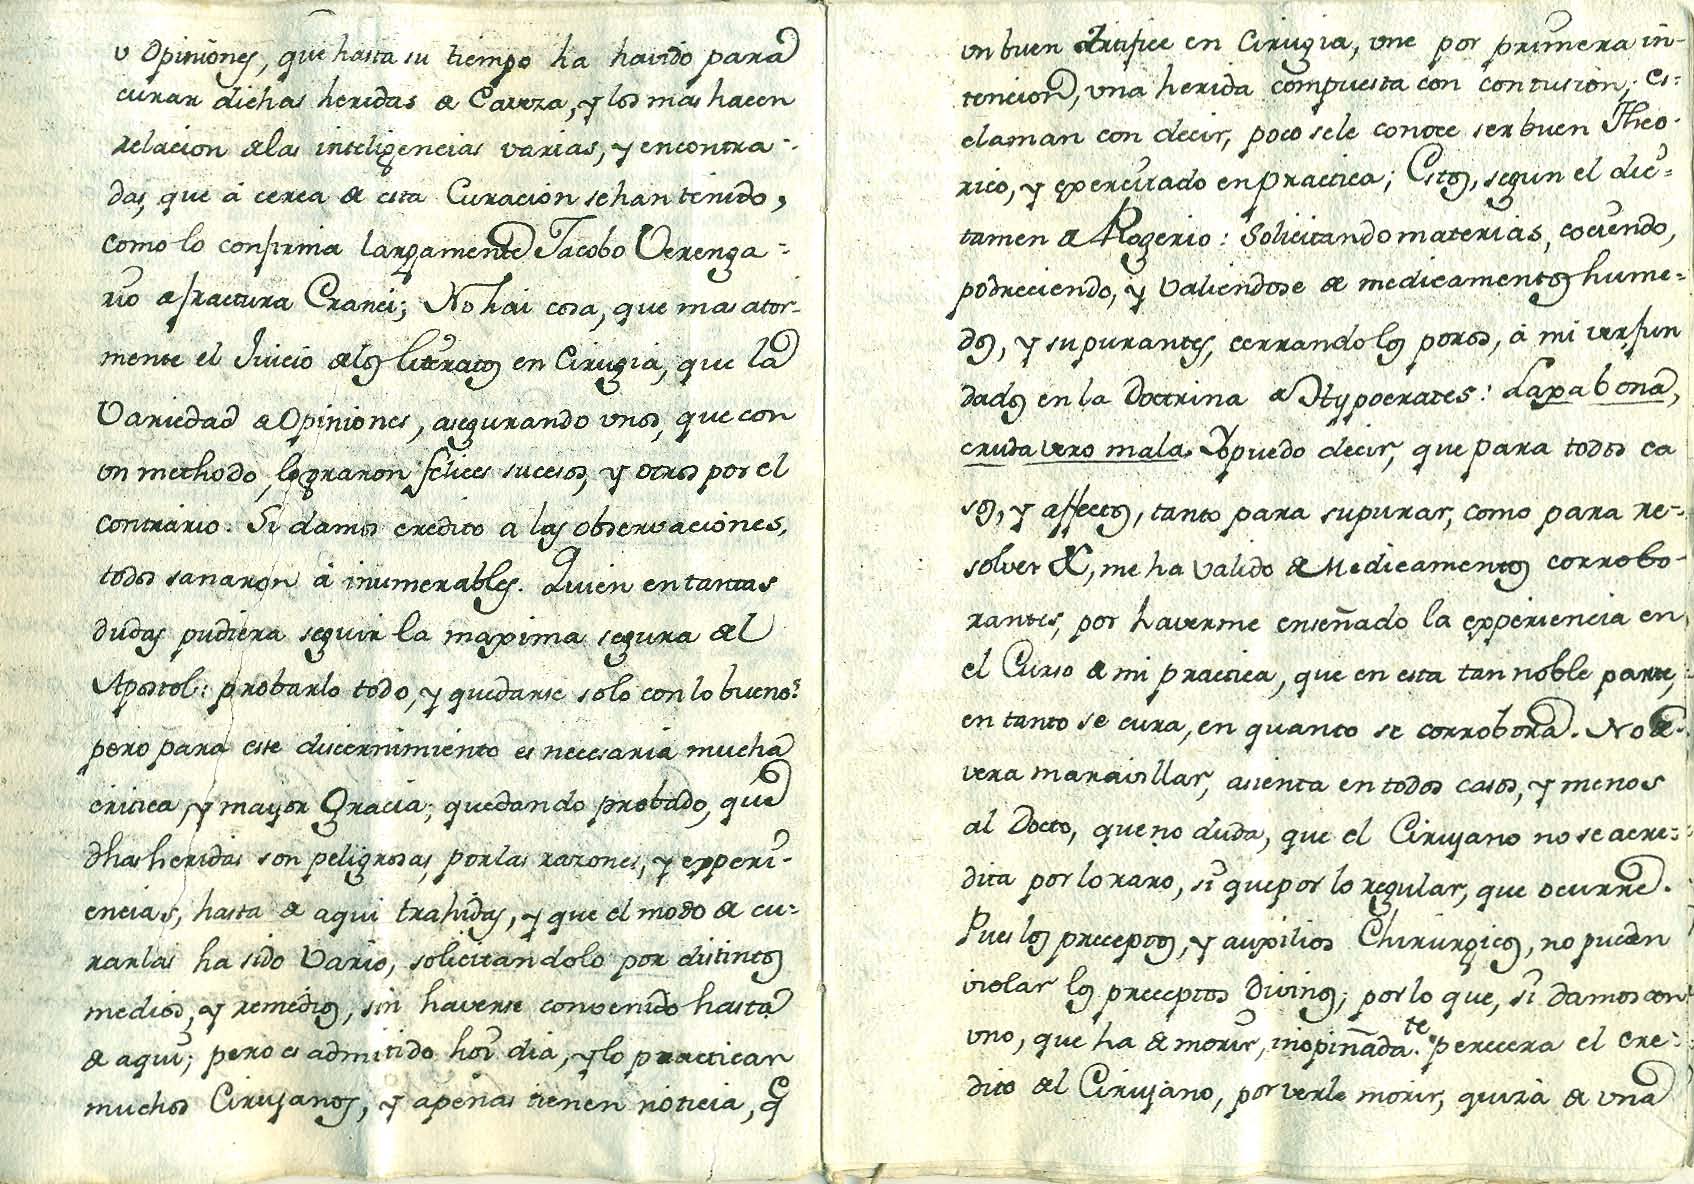 u Opiniones, que hasta su tiempo ha havido para
curar dichas heridas de Caveza, y los mas hacen
relacion de las inteligencias varias, y encontra-
das, que à cerca de esta Curacion se han tenido,
como lo confirma largamente Jacobo Verenga-
rio de fractura Cranei; No hai cosa, que mas ator-
mente el Juicio de los literatos en Cirugia, que la
Variedad de Opiniones, asegurando unos, que con
un methodo, lograron felices sucesos, y otros por el
contrario. Si damos credito a las observaciones,
todos sanaron à inumerables. Quien en tantas
dudas pudiera seguir la maxima segura del
Apostol: probarlo todo, y quedarse solo con lo bueno?
pero para este discernimiento es necesaria mucha
critica, y mayor Gracia; quedando probado, que
dhas heridas son peligrosas, por las razones, y experi-
encias, hasta de aqui trahidas, y que el modo de cu-
rarlas ha sido Vario, solicitandolo por distintos
medios, y remedios, sin haverse convenido hasta
de aqui; pero es admitido hoi dia, y lo practican
muchos Cirujanos, y apenas tienen noticia, q̃
un buen Artifice en Cirugia, une por primera in-
tencion, una herida compuesta con contusion, es-
claman con decir, poco se le conoce ser buen Theo-
rico, y exercitado en practica; Estos, segun el dic-
tamen de Rogerio: Solicitando materias, cociendo,
podreciendo, y valiendose de medicamentos hume-
dos, y supurantes, cerrando los poros, à mi ver, fun
dados en la Doctrina de Hypocrates: Laxa bona,
cruda vero mala. Yo puedo decir, que para todos ca
sos, y affectos, tanto para supurar, como para re-
solver &, me ha valido de Medicamentos corrobo-
rantes, por haverme enseñado la experiencia en
el Curso de mi practica, que en esta tan noble parte,
en tanto se cura, en quanto se corrobora. No de-
vera maravillar, asienta en todos casos, y menos
al Docto, que no duda, que el Cirujano no se acre-
dita por lo raro, si que por lo regular, que ocurre.
Pues los preceptos, y auxilios Chirurgicos, no pueden
violar los preceptos Divinos; por lo que, si damos con
uno, que ha de morir, inopinada.te perecera el cre-
dito del Cirujano, por verle morir, quizà de una